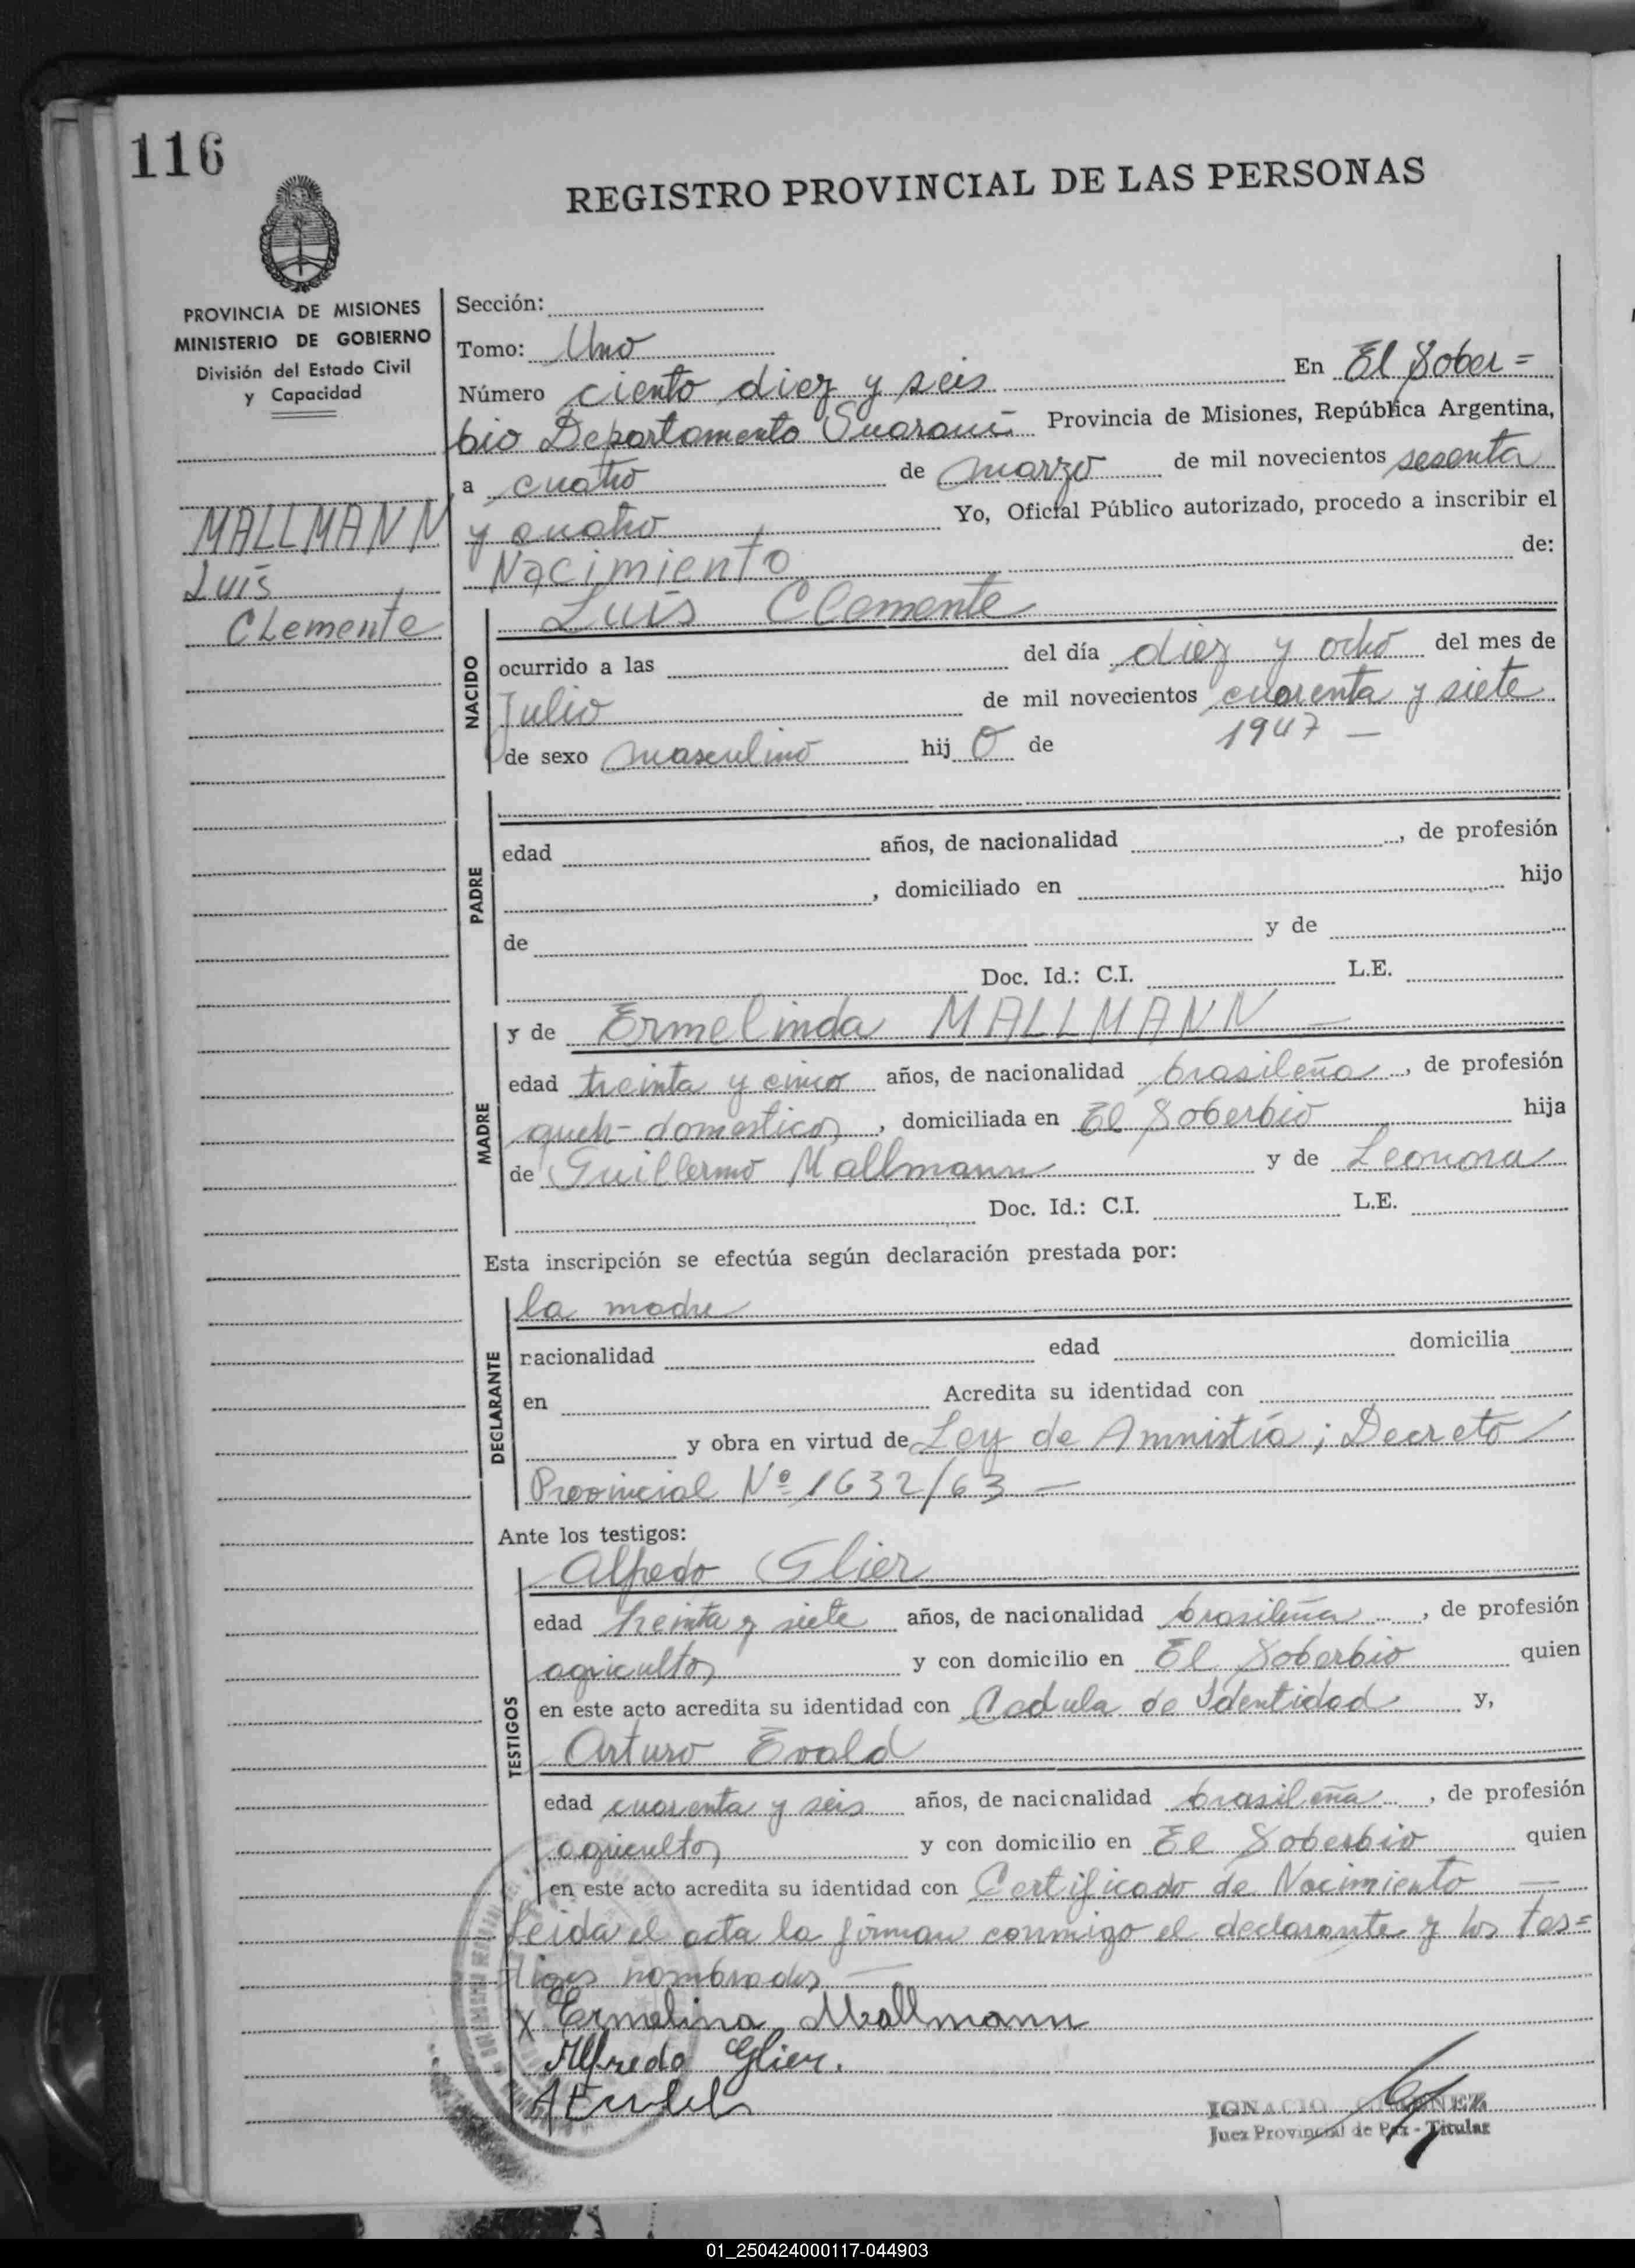 116
REGISTRO PROVINCIAL DE LAS PERSONAS
PROVINCIA DE MISIONES
MINISTERIO DE GOBIERNO
División del Estado Civil
y Capacidad
MALLMANN
Luis
CLemente
Sección:
Tomo: Uno
Número ciento diez y seis En El Sober=
bio Departamento Guaraní Provincia de Misiones, República Argentina,
a cuatro de marzo de mil novecientos sesenta
y cuatro Yo, Oficial Público autorizado, procedo a inscribir el
Nacimiento de:
NACIDO
Luis Clemente
ocurrido a las del día diez y ocho del mes de
Julio de mil novecientos cuarenta y siete
1947 —
de sexo masculino hijo de
PADRE
edad años, de nacionalidad , de profesión
, domiciliado en hijo
de y de
Doc. Id.: C.I. L.E.
MADRE
y de Ermelinda MALLMANN —
edad treinta y cinco años, de nacionalidad brasileña, de profesión
queh-domesticos, domiciliada en El Soberbio hija
de Guillermo Mallmann y de Leonora
Doc. Id.: C.I. L.E.
Esta inscripción se efectúa según declaración prestada por:
DECLARANTE
la madre
nacionalidad edad domicilia
en Acredita su identidad con
y obra en virtud de Ley de Amnistía; Decreto
Provincial Nº 1632/63 —
Ante los testigos:
TESTIGOS
Alfredo Glier
edad treinta y siete años, de nacionalidad brasileña, de profesión
agricultor y con domicilio en El Soberbio quien
en este acto acredita su identidad con Cedula de Identidad y,
Arturo Evald
edad cuarenta y seis años, de nacionalidad brasileña, de profesión
agricultor y con domicilio en El Soberbio quien
en este acto acredita su identidad con Certificado de Nacimiento —
Leida el acta la firman conmigo el declarante y los tes=
tigos nombrados —
x Ermelina Mallmann
Alfredo Glier.
IGNACIO
Juez Provincial de Paz - Titular
01_250424000117-044903